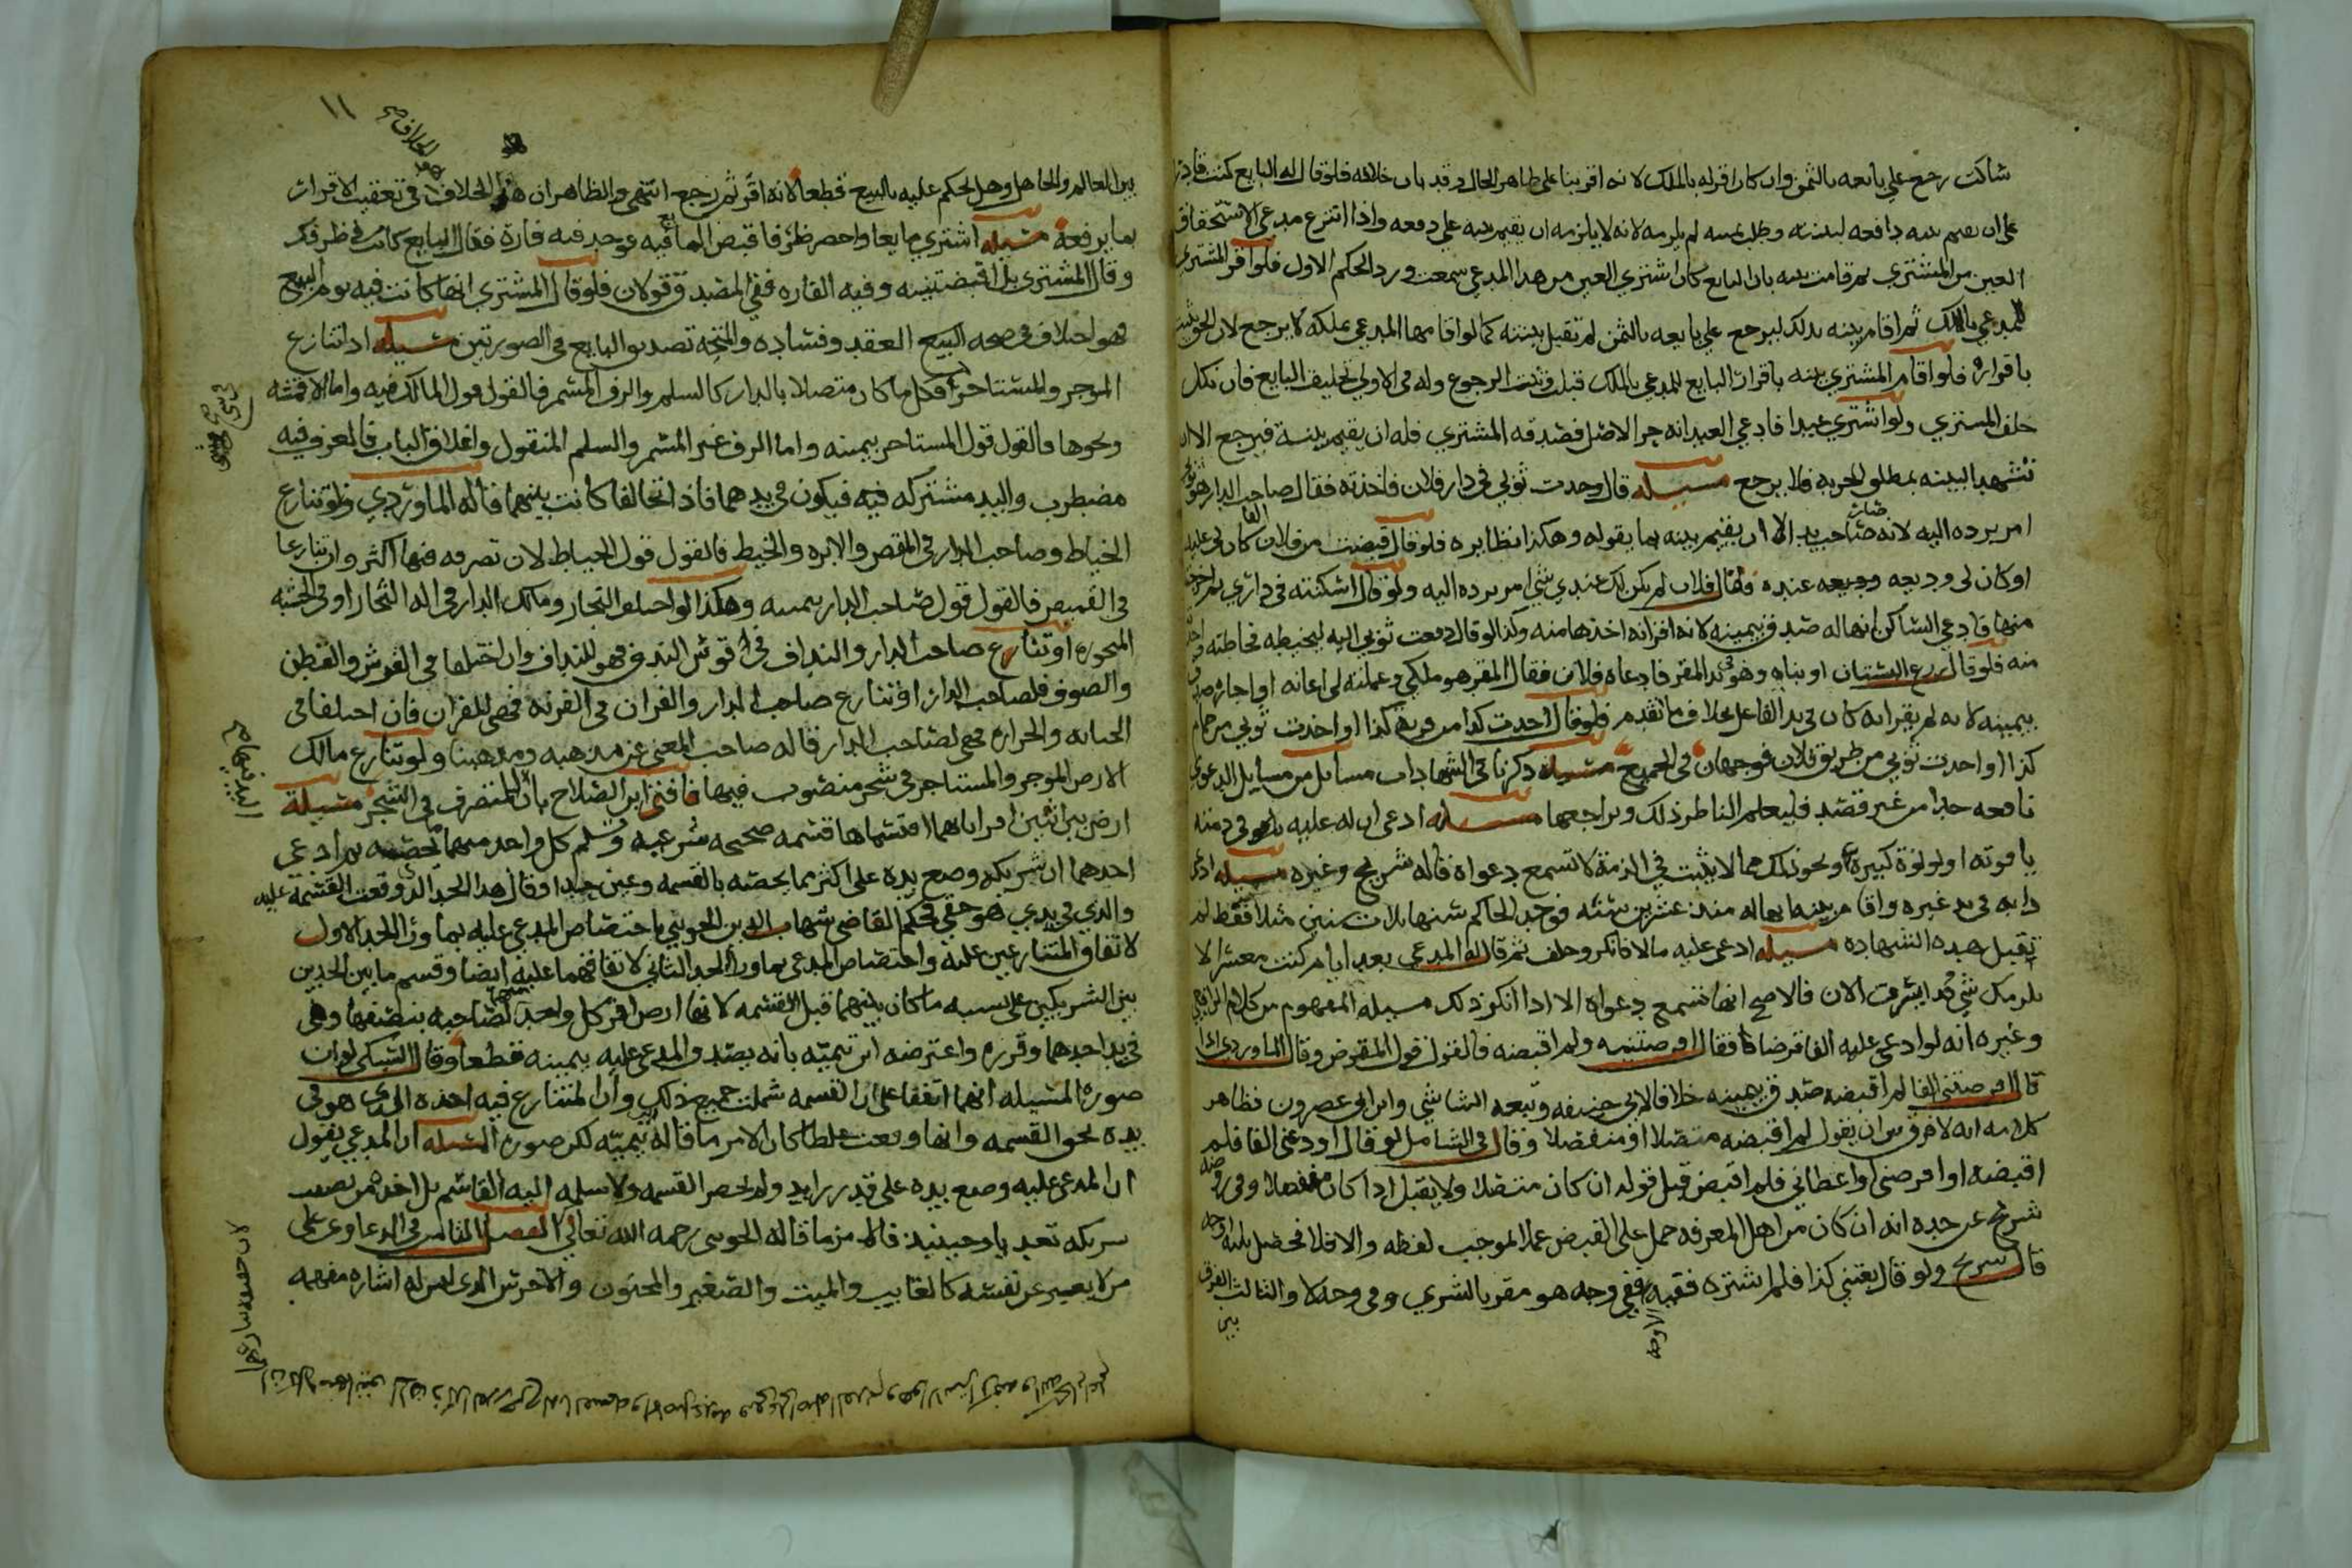 ساكت رجع على بايعه بالثمن وان كان اقر له بالملك لانه اقر بنا على ظاهر الحال وقد بان خلافه فلو قال له البايع كنت قادرا
على ان تقيم بينه دافعه لبينته وطلب يمينه لم يلزمه لانه لا يلزمه ان يقيم بينه على دفعه واذا انتزع مدعي الاستحقاق
العين من المشتري ثم قامت بينه بان البايع كان اشترى العين من هذا المدعي سمعت ورد الحكم الاول فلو اقر المشتري
للمدعي بالملك ثم اقام بينه بذلك ليرجع على بايعه بالثمن لم تقبل بينته كما لو اقامها المدعي بملكه لا يرجع لان الحق يثبت
باقراره فلو اقام المشتري بينه باقرار البايع للمدعي بالملك قبلت وثبت الرجوع وله في الاولى تحليف البايع فان نكل
حلف المشتري ولو اشترى عبدا فادعى العبد انه حر الاصل فصدقه المشتري فله ان يقيم بينة فيرجع الا ان
تشهد البينه بمطلق الحريه فلا يرجع مسيله قال وجدت ثوبي في دار فلان فاخذته فقال صاحب الدار هو ثوبي
امر برده اليه لانه صاحب يد الا ان يقيم بينه بما يقوله وهكذا نظايره فلو قال قبضت من فلان الفا كان لي عليه
او كان لي وديعه عنده فقال فلان لم يكن لك عندي شي امر برده اليه ولو قال اسكنته في داري ثم اخرجته
منها فادعى الساكن انها له صدق بيمينه لانه اقر انه اخذها منه وكذا لو قال دفعت ثوبي اليه ليخيطه فخاطه
منه فلو قال زرع البستان او بناه وهو في يد المقر فادعاه فلان فقال المقر هو ملكي وعملته لي اعانه او اجاره صدق
بيمينه لانه لم يقر انه كان في يد الفاعل بخلاف ما تقدم فلو قال اخذت كذا من قريه كذا او اخذت ثوبي من حمام
كذا او اخذت ثوبي من طريق فلان فوجهان في الجميع مسيله ذكرنا في الشهادات مسايل من مسايل الدعوى
نافعه جدا من غير قصد فليعلم الناظر ذلك وليراجعها مسيله ادعى ان له عليه في ذمته
ياقوته او لولوة كبيرة ونحو ذلك مما لا يثبت في الذمة لا تسمع دعواه قاله شريح وغيره مسيله ادعى
دابه في يد غيره واقام بينه انها له منذ عشرين سنه فوجد الحاكم سنها ثلاث سنين مثلا فقط لم
تقبل هذه الشهاده مسيله ادعى عليه مالا فانكر وحلف ثم قال له المدعي بعد ايام كنت معسرا لا
يلزمك شي وقد ايسرت الان فالاصح انها تسمع دعواه الا اذا انكر ذلك مسيله المفهوم من كلام الرافعي
وغيره انه لو ادعى عليه الفا قرضا فقال اقرضتنيه ولم اقبضه فالقول قول المقرض وقال الماوردي اذا
قال اقرضتني الفا لم اقبضه صدق بيمينه خلافا لابي حنيفه وتبعه الشاشي وابن ابي عصرون فظاهر
كلامه انه لا فرق بين ان يقول لم اقبضه متصلا او منفصلا وقال في الشامل لو قال اودعني الفا فلم
اقبضه او اقرضني او اعطاني فلم اقبض قبل قوله ان كان متصلا ولا يقبل اذا كان منفصلا وفي روضه
شريح عن جده انه ان كان من اهل المعرفه حمل على القبض عملا لموجب لفظه والا فلا فحصل ثلثه اوجه
قال شريح ولو قال بعتني كذا فلم اشتره ففيه الاوجه ففي وجه هو مقر بالشري وفي وجه لا والثالث الفرق
بين
١١
بين العالم والجاهل وهل يحكم عليه بالبيع قطعا لانه اقر ثم رجع انتهى والظاهر ان هذا الخلاف في تعقيب الاقرار
بما يرفعه مسيله اشترى مايعا واحضر ظرفا فاقبض المايع فيه فوجد فيه فارة فقال البايع كانت في ظرفك
وقال المشتري بل اقبضتنيه وفيه الفاره ففي المصدق قولان فلو قال المشتري انها كانت فيه يوم البيع
فهو اختلاف في صحه العقد وفساده والمتجه تصديق البايع في الصورتين مسيله اذا تنازع
الموجر والمستاجر فكل ما كان متصلا بالدار كالسلم والرف المسمر فالقول قول المالك فيه واما الاقمشه
ونحوها فالقول قول المستاجر بيمينه واما الرف غير المسمر والسلم المنقول واغلاق الباب فالمعروف فيه
مضطرب واليد مشتركه فيه فيكون في يدهما فاذا تحالفا كانت بينهما قاله الماوردي ولو تنازع
الخياط وصاحب الدار في المقص والابره والخيط فالقول قول الخياط لان تصرفه فيها اكثر وان تنازعا
في القميص فالقول قول صاحب الدار بيمينه وهكذا لو اختلف النجار ومالك الدار في اله النجار او في الخشبه
المنجوره او تنازع صاحب الدار والنداف في قوس الندف فهو للنداف وان اختلفا في الفرش والقطن
والصوف فلصاحب الدار او تنازع صاحب الدار والقران في القربه فهي للقران فان اختلفا في
الخابيه والجرار فهي لصاحب الدار قاله صاحب المغني عن مذهبه ومذهبنا ولو تنازع مالك
الارض الموجر والمستاجر في شجر منصوب فيها فافتى ابن الصلاح بان المتصرف في الشجر مسيلة
ارض بين اثنين اقرا بانهما اقتسماها قسمه صحيحه شرعيه وتسلم كل واحد منهما حصته ثم ادعى
احدهما ان شريكه وضع يده على اكثر مما يخصه بالقسمه وعين حدا وقال هذا الحد الذي وقعت القسمة عليه
والذي في يدي هو حقي فحكم القاضي شهاب الدين الخويي باختصاص المدعى عليه بما ورا الحد الاول
لاتفاق المتنازعين عليه واختصاص المدعي بما ورا الحد الثاني لاتفاقهما عليه ايضا وقسم ما بين الحدين
بين الشريكين على نسبه ما كان بينهما قبل القسمه لانها ارض اقر كل واحد منهما لصاحبه بنصفها وهي
في يد احدهما وقرره واعترضه ابن تيميه بانه يصدق المدعى عليه بيمينه قطعا وقال السبكي لو ان
صورة المسيله انهما اتفقا على ان القسمه شملت جميع ذلك وان المتنازع فيه اخذه الذي هو في
يده بحق القسمه وانها وقعت غلطا كان الامر ما قاله ابن تيميه لكن صورة المسيله ان المدعي يقول
ان المدعى عليه وضع يده على قدر زايد ولم يحضر القسمه ولا سلمه اليه القاسم بل اخذه من نصيب
شريكه تعديا وحينيذ فالامر ما قاله الخويي رحمه الله تعالى الفصل الثامن في الدعاوى على
من لا يعبر عن نفسه كالغايب والميت والصغير والمجنون والاخرس الذي ليس له اشاره مفهمه